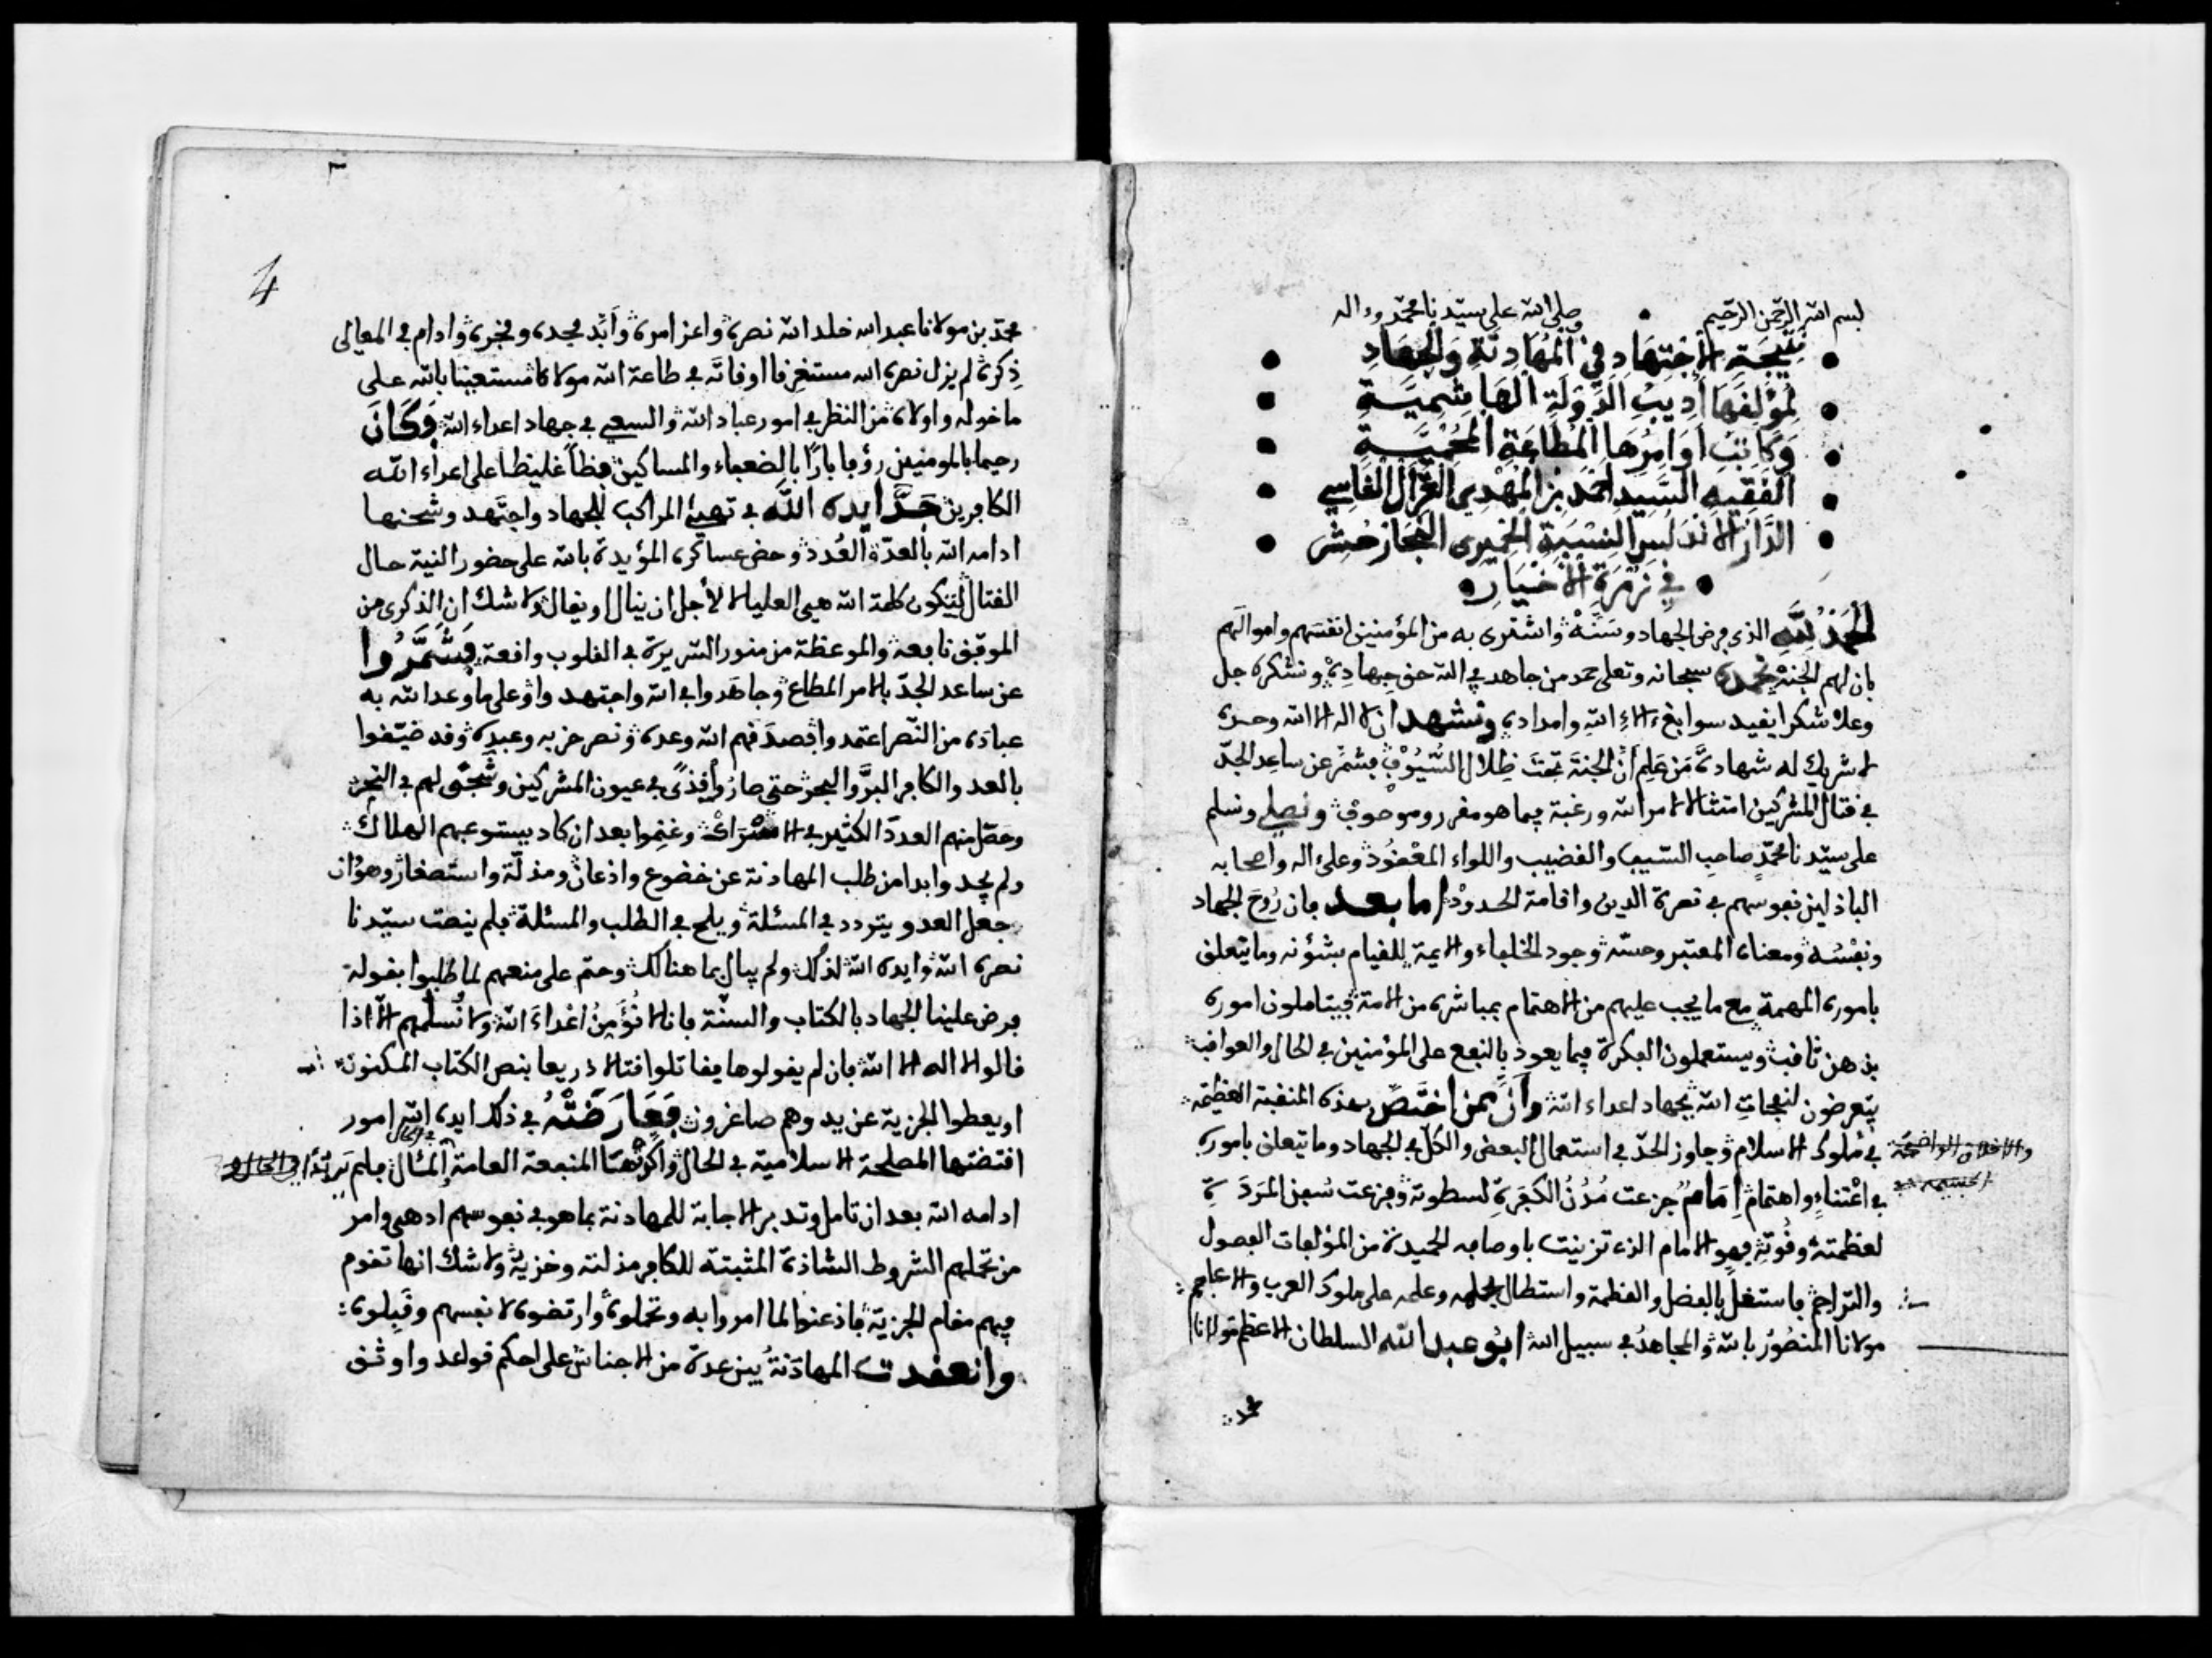 بسم الله الرحمن الرحيم • وصلى الله على سيدنا محمد وءاله
• نتيجة الاجتهاد في المهادنة والجهاد •
• لمؤلفها أديب الدولة الهاشمية •
• وكاتب أوامرها المطاعة المحمية •
• الفقيه السيد احمد بن المهدي الغزال الفاسي •
• الدار الاندلسي النسبة الحميري النجار حشر •
• في زمرة الاخيار •
الحمد لله الذي فرض الجهاد وسنه واشترى به من المؤمنين انفسهم واموالهم
بان لهم الجنة نحمده سبحانه وتعلى حمد من جاهد في الله حق جهاده ونشكره جل
وعلا شكرا يفيد سوابغ ءالاء الله وامداده ونشهد ان لا اله الا الله وحده
لا شريك له شهادة من علم أن الجنة تحت ظلال السيوف فشمر عن ساعد الجد
في قتال المشركين امتثالا لامر الله ورغبة فيما هو مقرر وموصوف ونصلي ونسلم
على سيدنا محمد صاحب السيف والقضيب واللواء المعقود وعلى اله واصحابه
الباذلين نفوسهم في نصرة الدين واقامة الحدود اما بعد فان روح الجهاد
ونفسه ومعناه المعتبر وحسه وجود الخلفاء والايمة للقيام بشؤنه وما يتعلق
باموره المهمة مع ما يجب عليهم من الاهتمام بمباشره من الامة فيتاملون اموره
بذهن ثاقب ويستعملون الفكرة فيما يعود بالنفع على المؤمنين في الحال والعواقب
يتعرضون لنفحات الله بجهاد اعداء الله وأن ممن اختص بهذه المنقبة العظيمة
في ملوك الاسلام وجاوز الحد في استعمال البعض والكل في الجهاد وما تيعلق باموره
والاخلاق الواضحة
الجسيمة
في اعتناء واهتمام إمام جزعت مدن الكفرة لسطوته وفزعت سفن المردة
لعظمته وقوته فهو الامام الذي تزينت باوصافه الحميدة من المؤلفات الفصول
والتراجم فاستقل بالفضل والعظمة واستطال بحلمه وعلمه على ملوك العرب والاعاجم
مولانا المنصور بالله والمجاهد في سبيل الله ابو عبد الله السلطان الاعظم مولانا
محمد
٣
4
محمد بن مولانا عبد الله خلد الله نصره واعز امره وأبد مجده وفخره وادام في المعالى
ذكره لم يزل نصره الله مستغرقا اوقاته في طاعة الله مولاه مستعينا بالله على
ما خوله واولاه من النظر في امور عباد الله والسعي في جهاد اعداء الله فكان
رحيما بالمومنين رؤفا بارا بالضعفاء والمساكين فظا غليظا على اعداء الله
الكافرين جد أيده الله في تهيئ المراكب للجهاد واجتهد وشحنها
ادامه الله بالعدة والعدد وحض عساكره المؤيدة بالله على حضور النية حال
القتال لتكون كلمة الله هي العليا لا لأجل ان ينال او يقال ولا شك ان الذكرى من
الموفق نافعة والموعظة من منور السريرة في القلوب واقعة فشمروا
عن ساعد الجد بالامر المطاع وجاهدوا في الله واجتهدوا وعلى ما وعد الله به
عباده من النصر اعتمدوا فصدقهم الله وعده ونصر حزبه وعبده وقد ضيقوا
بالعدو الكافر البر والبحر حتى صاروا قذى في عيون المشركين وشجى لهم في النحر
وحصل منهم العدد الكثير في الاسر وغنموا بعد ان كاد يستوعبهم الهلاك
ولم يجدوا بدا من طلب المهادنة عن خضوع واذعان ومذلة واستصغار وهوان
جعل العدو يتردد في المسئلة ويلح في الطلب والمسئلة فلم ينصت سيدنا
نصره الله وايده الله لذلك ولم يبال بما هنالك وحتم على منعهم لما طلبوا بقوله
فرض علينا الجهاد بالكتاب والسنة فانا لا نؤمن أعداء الله ولا نسلمهم الا اذا
قالوا لا اله الا الله فان لم يقولوها يقاتلوا قتالا ذريعا بنص الكتاب المكنون
او يعطوا الجزية عن يد وهم صاغرون فعارضته في ذلك ايده الله امور
اقتضتها المصلحة الاسلامية في الحال وأكدتها المنفعة العامة في المئال فلم ير بدا
ادامه الله بعد ان تامل وتدبر الاجابة للمهادنة بما هو في نفوسهم ادهى وامر
من تحملهم الشروط الشاذة المثبتة للكافر مذلته وخزيه ولا شك انها تقوم
فيهم مقام الجزية فاذعنوا لما امروا به وتحملوه وارتضوه لانفسهم وقبلوه
وانعقدت المهادنة بين عدة من الاجناس على احكم قواعد واوثق